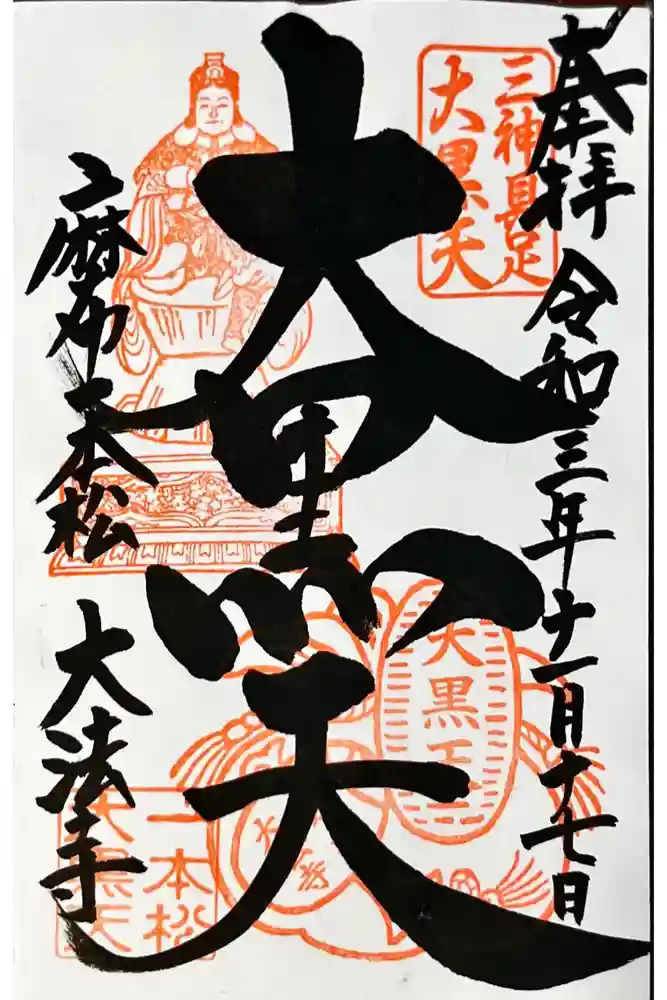 奉拝 令和三年十一月十七日
三神具足
大黒天
大黒天
大黒天
麻布一本松 大法寺
一本松
大黒天